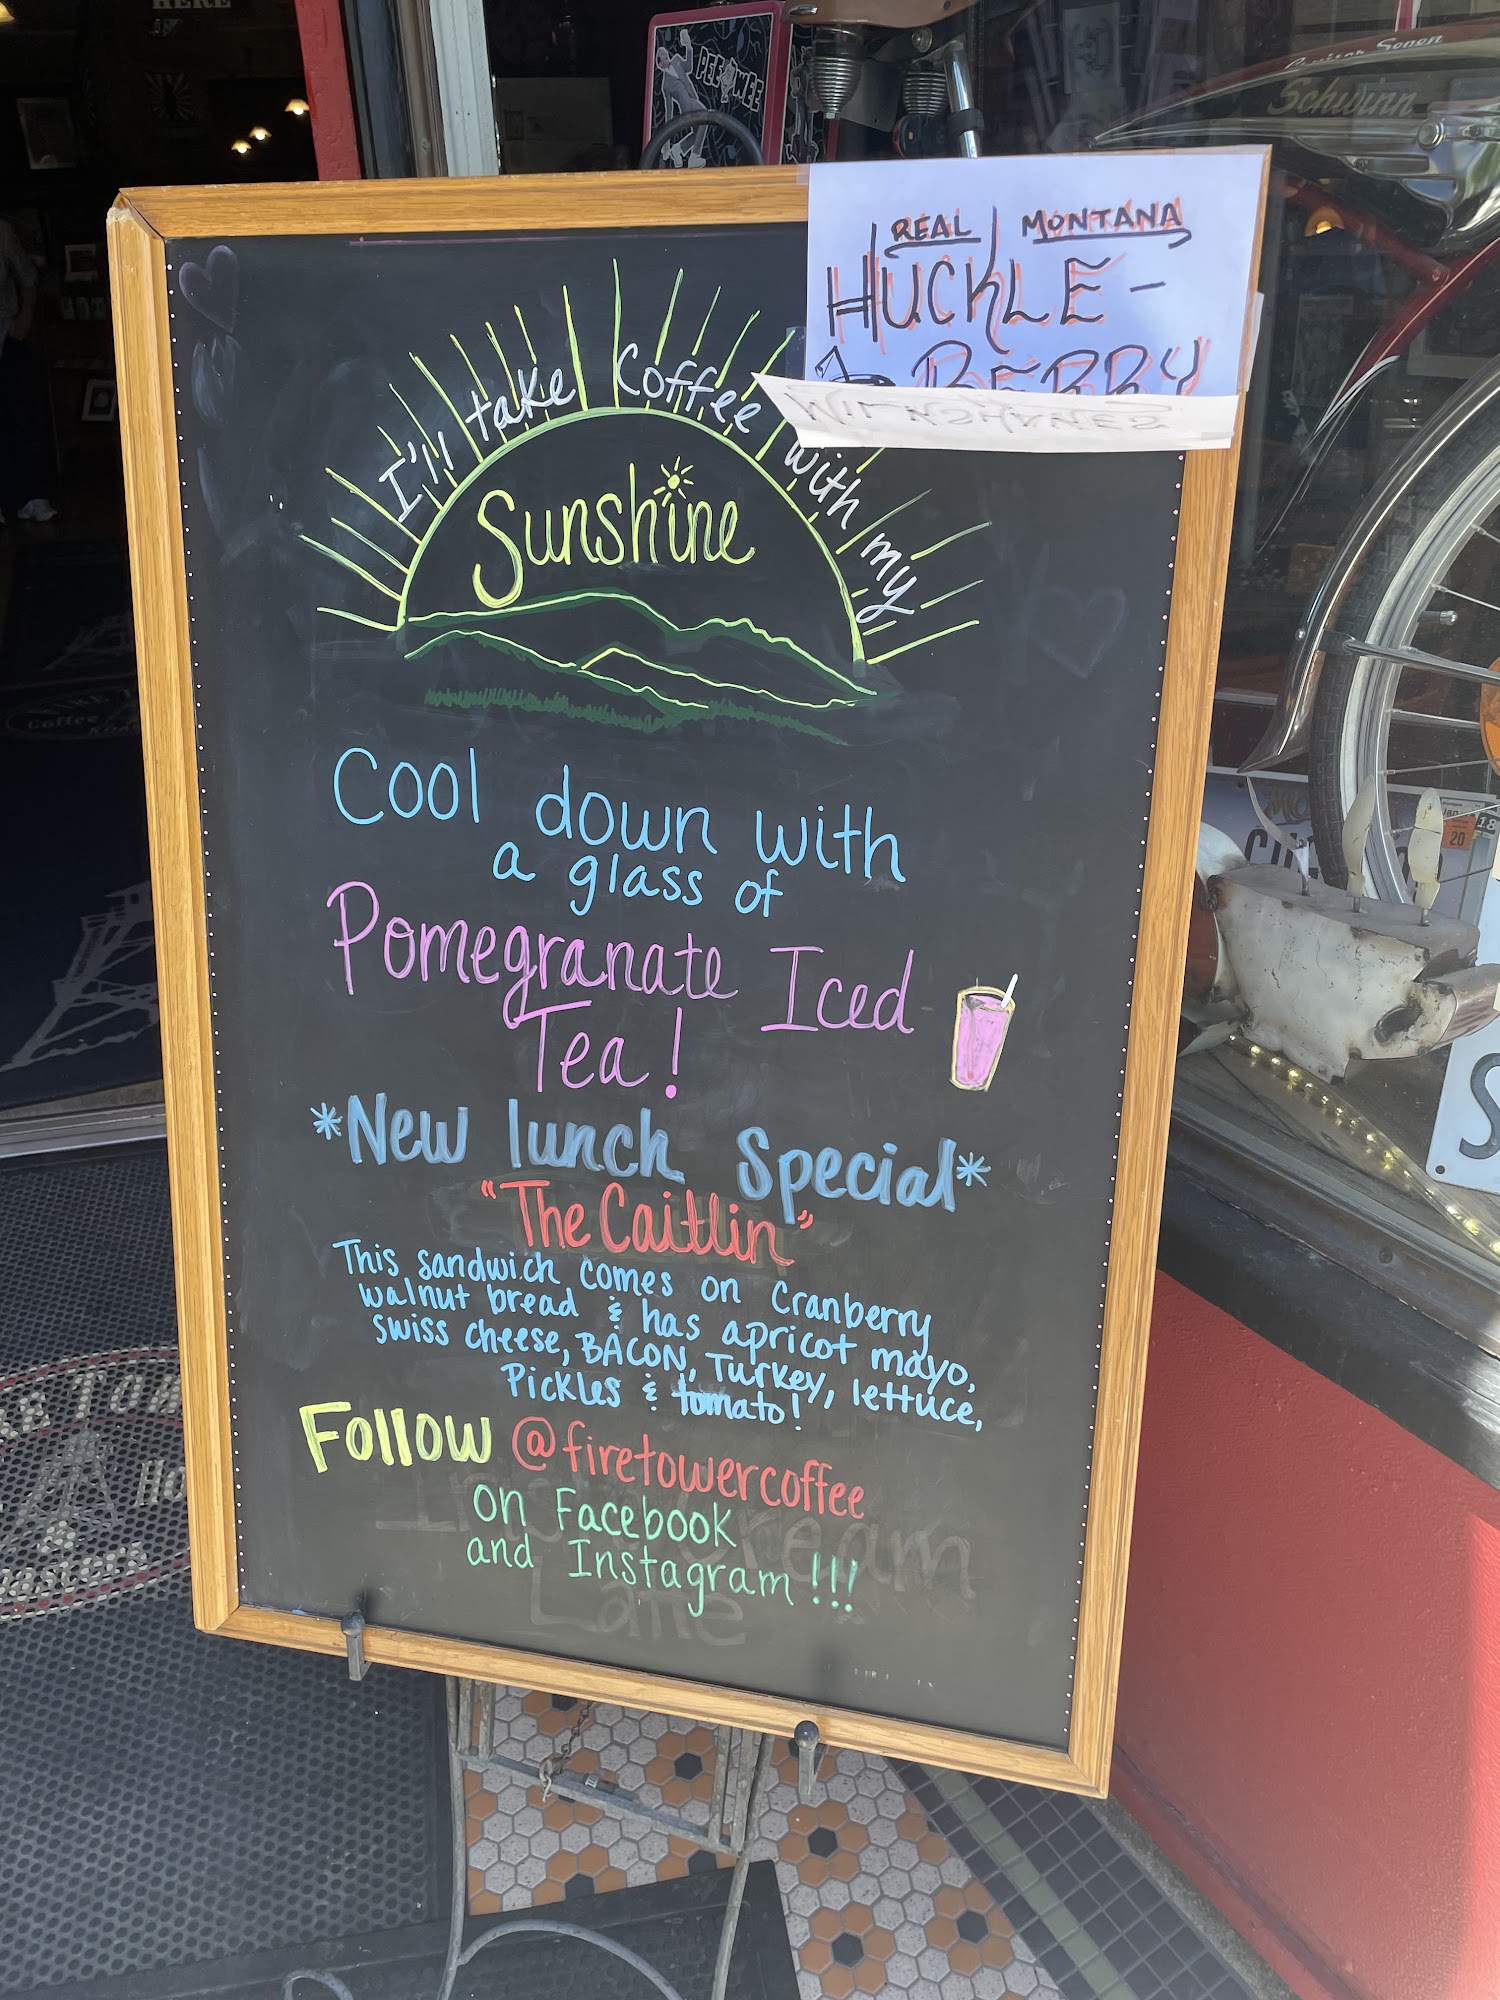 HERE
PEE WEE
Cruiser Seven
Schwinn
REAL MONTANA
HUCKLE-
BERRY
I'll take Coffee with my
Sunshine
Cool down with
a glass of
Pomegranate Iced
Tea!
*New lunch Special*
"The Caitlin"
This sandwich comes on Cranberry
walnut bread & has apricot mayo,
swiss cheese, BACON, Turkey, lettuce,
Pickles & tomato!
Follow @firetowercoffee
on Facebook
and Instagram!!!
Latte
Coffee
20
18
S